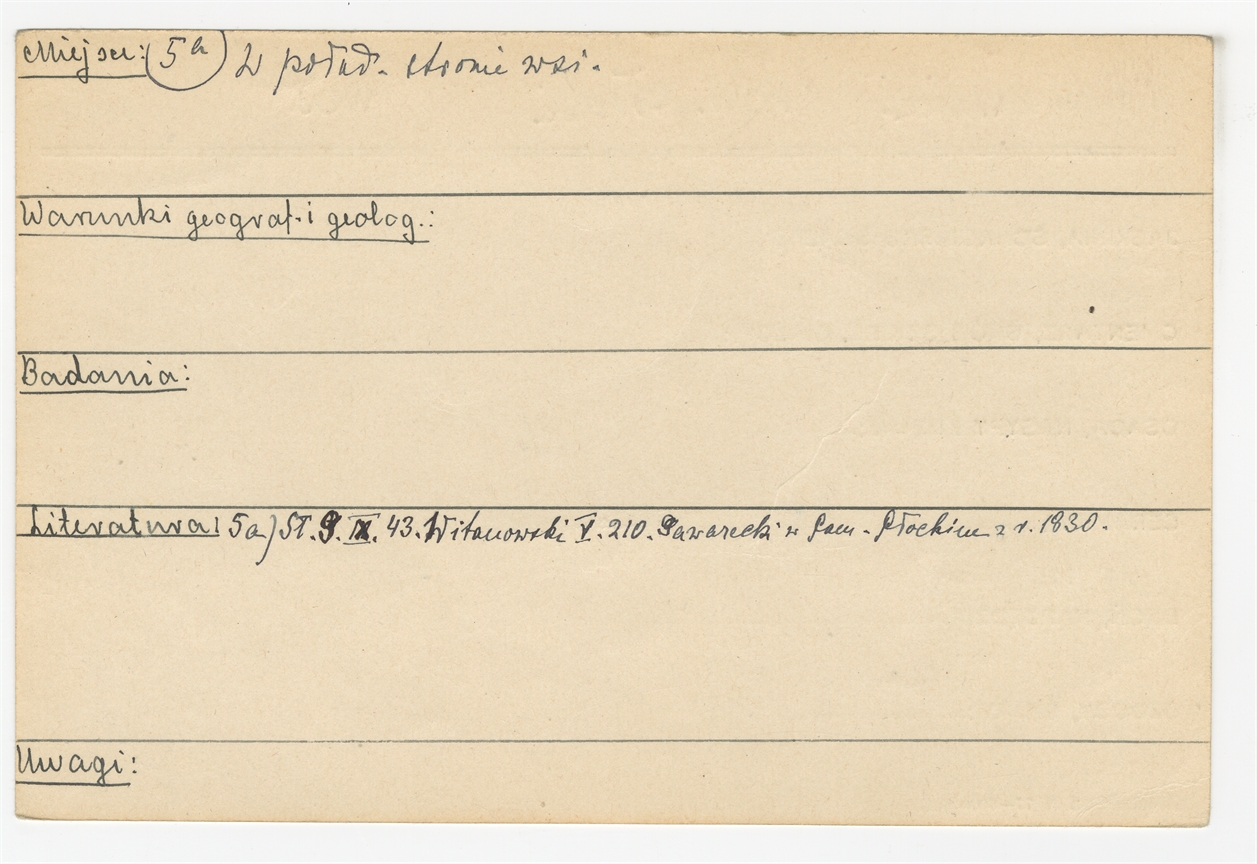 Miejsc: 5a W połud. stronie wsi.
Warunki geograf. i geolog.:
Badania:
Literatura: 5a) St. G. IX. 43. Witanowski V. 210. Gawarecki w Pam. Płockim z r. 1830.
Uwagi: